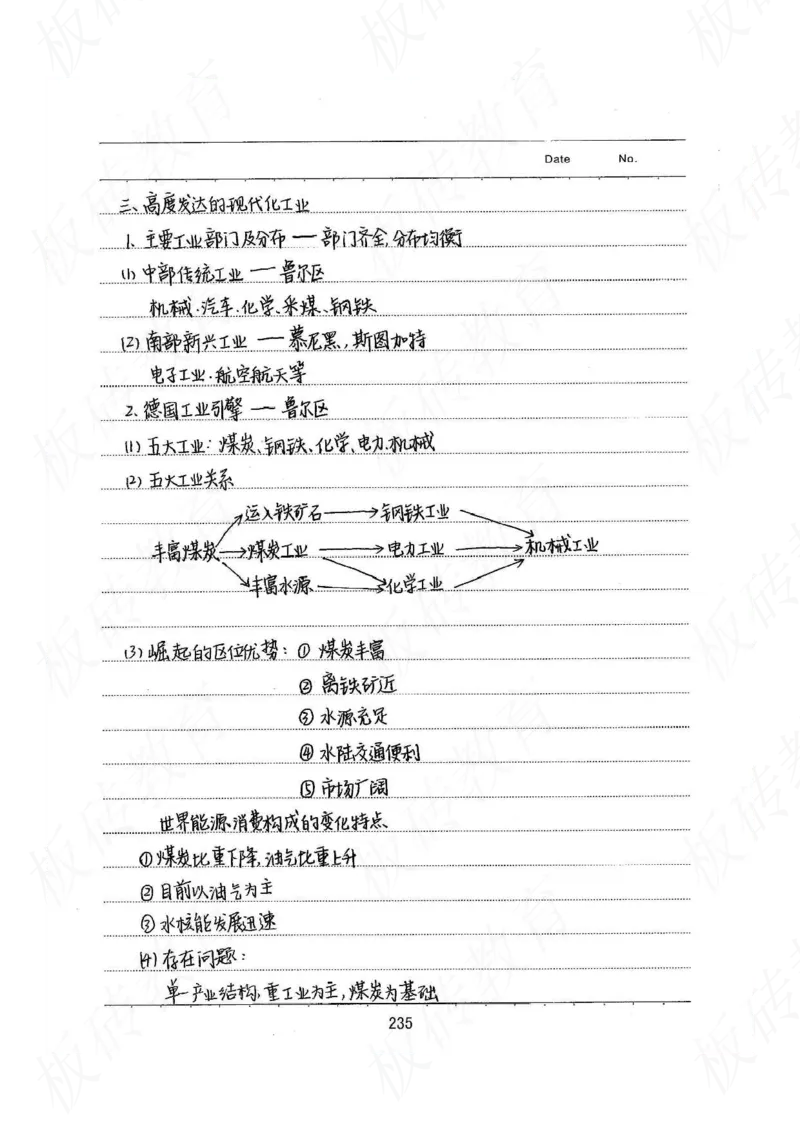 Date No.
三、高度发达的现代化工业
1. 主要工业部门及分布 — 部门齐全,分布均衡
(1) 中部传统工业 — 鲁尔区
机械、汽车、化学、采煤、钢铁
(2) 南部新兴工业 — 慕尼黑,斯图加特
电子工业、航空航天等
2. 德国工业引擎 — 鲁尔区
(1) 五大工业: 煤炭、钢铁、化学、电力、机械
(2) 五大工业关系
运入铁矿石 → 钢铁工业
丰富煤炭 → 煤炭工业 → 电力工业 → 机械工业
丰富水源 → 化学工业
(3) 崛起的区位优势: ① 煤炭丰富
② 离铁矿近
③ 水源充足
④ 水陆交通便利
⑤ 市场广阔
世界能源消费构成的变化特点
① 煤炭比重下降,油气比重上升
② 目前以油气为主
③ 水核能发展迅速
(4) 存在问题:
单一产业结构,重工业为主,煤炭为基础
235
板砖教育